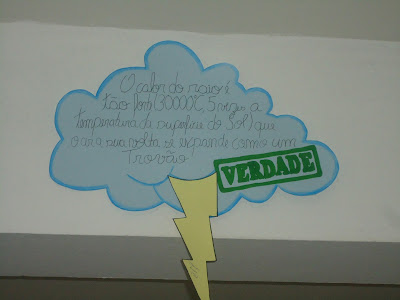 O calor do raio é
tão forte (30000ºC, 5 vezes a
temperatura da superfície do Sol) que
o ar a sua volta se expande como um
Trovão
VERDADE